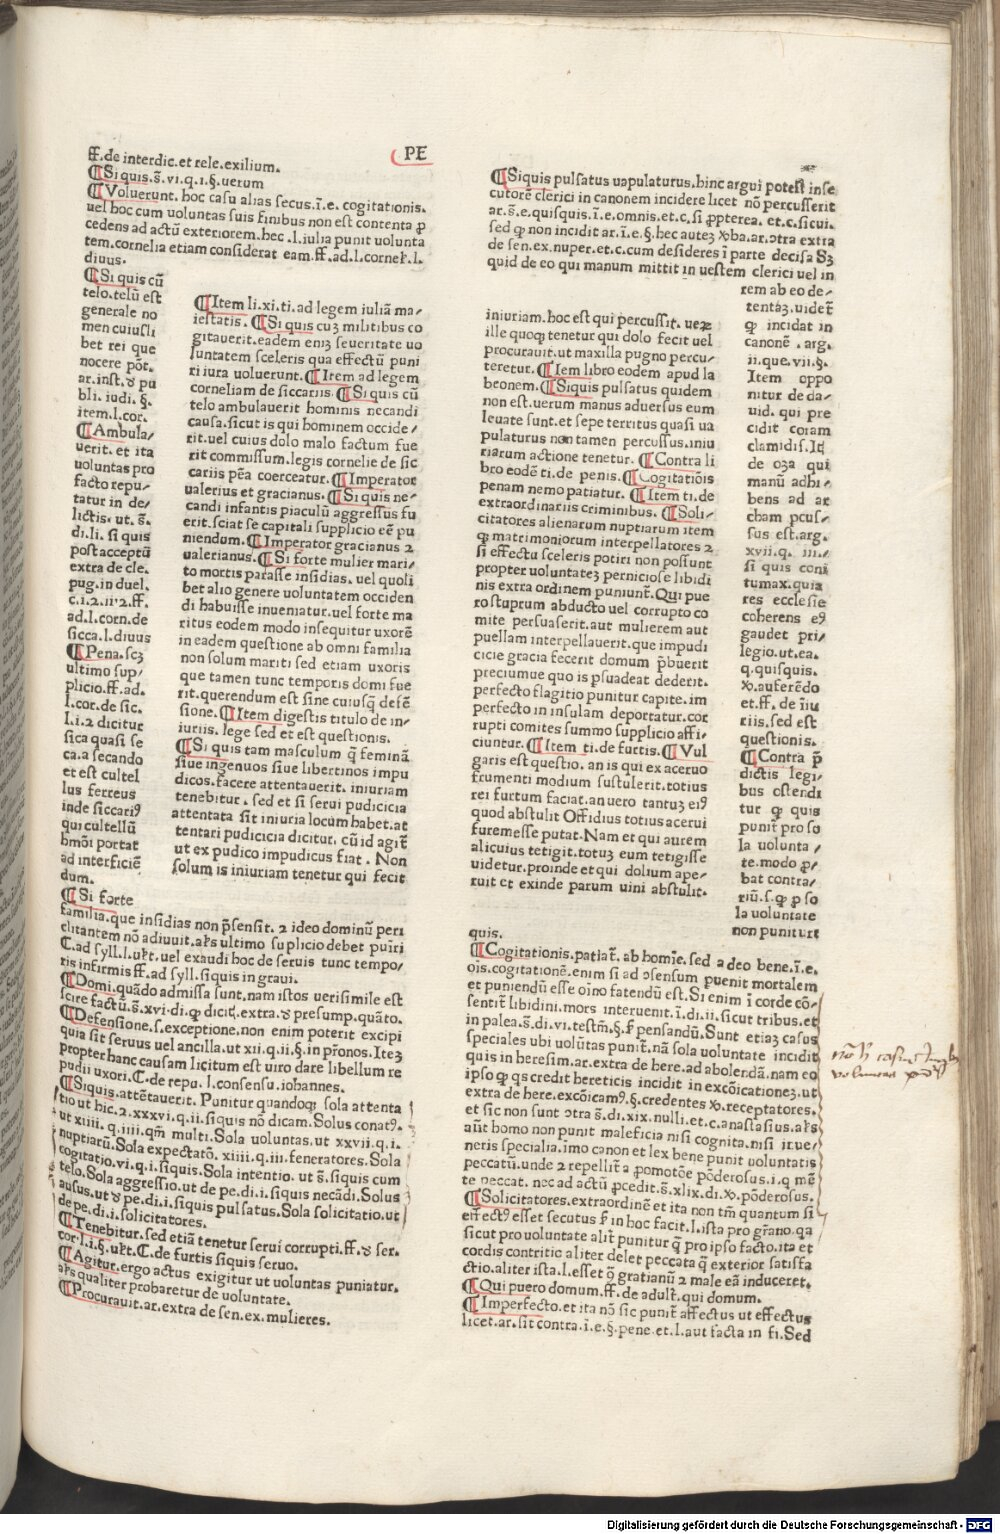 PE
ff.de interdic.et rele.exilium.
¶Si quis.s̄.vi.q.i.§.uerum
¶Voluerunt. hoc casu alias secus.ī.e. cogitationis.
uel hoc cum voluntas suis finibus non est contenta ꝓ
cedens ad actū exteriorem.hec .l.iulia punit volunta
tem.cornelia etiam considerat eam.ff.ad.l.cornel̵.l.
diuus.
¶Si quis cū
telo.telū est
generale no
men cuiusli
bet rei que
nocere pōt.
ar.inst.ꝺ pu
bli. iudi. §.
item.l.cor.
¶Ambula⸗
uerit. et ita
voluntas pro
facto repu⸗
tatur in de⸗
lictis. ut. s̄.
di.li. si quis
post acceptū
extra de cle.
pug.in duel.
c.i.2.ii⁊2.ff.
ad.l.corn.de
sicca.l.diuus
¶Pena.scꝫ
ultimo sup⸗
plicio.ff.ad.
l.cor.de sic.
l.i.2 dicitur
sica quasi se
ca.a secando
et est cultel
lus ferreus
inde siccariꝰ
qui cultellū
hmōi portat
ad interficiē
dum.
¶Item li.xi.ti.ad legem iuliā ma⸗
iestatis. ¶Si quis cuꝫ militibus co
gitauerit.eadem enīꝫ seueritate uo
luntatem sceleris qua effectū puni
ri iura voluerunt.¶Item ad legem
corneliam de siccariis.¶Si quis cū
telo ambulauerit hominis necandi
causa.sicut is qui hominem occide⸗
rit.uel cuius dolo malo factum fue
rit commissum.legis cornelie de sic
cariis pēa coerceatur.¶Imperator
ualerius et gracianus.¶Si quis ne⸗
candi infantis piaculū aggressus fu
erit.sciat se capitali supplicio eē pu
niendum.¶Imperator gracianus 2
ualerianus.¶Si forte mulier mari⸗
to mortis parasse insidias.uel quoli
bet alio genere voluntatem occiden
di habuisse inueniatur.uel forte ma
ritus eodem modo insequitur uxorē
in eadem questione ab omni familia
non solum mariti sed etiam uxoris
que tamen tunc temporis domi fue
rit.querendum est sine cuiusq̄ defē
sione.¶Item digestis titulo de in⸗
iuriis. lege sed et est questionis.
¶Si quis tam masculum q̄ feminā
siue ingenuos siue libertinos impu
dicos.facere attentauerit. iniuriam
tenebitur. sed et si serui pudicicia
attentata sit iniuria locum habet.at
tentari pudicicia dicitur. cū id agit̄
ut ex pudico impudicus fiat. Non
solum is iniuriam tenetur qui fecit
¶Si forte
familia.que insidias non p̄sensit. 2 ideo dominū peri
clitantem nō adiuuit.al̵s ultimo supplicio debet puīri
C.ad syll.l.ul̵t.uel exaudi hoc de seruis tunc tempo⸗
ris infirmis ff.ad syll.si quis in graui.
¶Domi.quādo admissa sunt.nam istos uerisimile est
scire factū.s̄.xvi.di.ꝙ dicit̄.extra.ꝺ presump.quāto.
¶Defensione.s.exceptione.non enim poterit excipi
quia sit seruus uel ancilla.ut xii.q.ii.§.in p̄ronos.Iteꝫ
propter hanc causam licitum est uiro dare libellum re
pudii uxori.C.de repu.l.consensu.iohannes.
¶Siquis.attētauerit. Punitur quandoqꝫ sola attenta
tio ut hic.2.xxxvi.q.ii.siquis nō dicam.Solus conatꝰ.
ut xiiii.q.iiii.qm̄ multi.Sola voluntas.ut xxvii.q.i.
nuptiarū.Sola expectatō. xiiii.q.iii.feneratores.Sola
cogitatio.vi.q.i.siquis.Sola intentio. ut s̄.siquis cum
telo.Sola aggressio.ut de pe.di.i.siquis necādi.Solus
ausus.ut ꝺ pe.di.i.siquis pulsatus.Sola solicitatio.ut
de pe.di.i.solicitatores.
¶Tenebitur.sed etiā tenetur serui corrupti.ff.ꝺ ser.
cor.l.i.§.ul̵t.C.de furtis siquis seruo.
¶Agitur.ergo actus exigitur ut voluntas puniatur.
al̵s qualiter probaretur de voluntate.
¶Procurauit.ar.extra de sen.ex.mulieres.
¶Siquis pulsatus uapulaturus.hinc argui potest inse
cutorē clerici in canonem incidere licet nō percusserit
ar.s̄.e.quisquis.ī.e.omnis.et.c.si ꝓpterea. et.c.sicui.
sed ꝙ non incidit ar.ī.e.§.hec auteꝫ ꝟba.ar.ↄtra extra
de sen.ex.nuper.et.c.cum desideres ī parte decisa Sꝫ
quid de eo qui manum mittit in uestem clerici uel in
rem ab eo de⸗
tentaꝫ.uidet̄
ꝙ incidat in
canonē . arg.
ii.que.vii.§.
Item oppo
nitur de da⸗
uid. qui pre
cidit coram
clamidis.It̄
de oza qui
manū adhi⸗
bens ad ar
cham ꝑcus⸗
sus est.arg.
xvii.q. iiii.
si quis con̄
tumax.quia
res ecclesie
coherens eꝰ
gaudet pri⸗
legio.ut.ea.
q.quisquis.
ꝟ.auferēdo
et.ff. de īiu
riis.sed est
questionis.
¶Contra p̄
dictis legi⸗
bus ostendi
tur ꝙ quis
punit̄ pro so
la volunta⸗
te.modo ꝓ⸗
bat contra⸗
riū.s.ꝙ ꝓ so
la voluntate
non punitur
iniuriam.hoc est qui percussit. ueꝝ
ille quoqꝫ tenetur qui dolo fecit uel
procurauit.ut maxilla pugno percu⸗
teretur.¶Iem libro eodem apud la
beonem.¶Siquis pulsatus quidem
non est.uerum manus aduersus eum
leuate sunt.et sepe territus quasi ua
pulaturus non tamen percussus.iniu
riarum actione tenetur. ¶Contra li
bro eodē ti.de penis.¶Cogitatiōis
penam nemo patiatur. ¶Item ti.de
extraordinariis criminibus. ¶Soli⸗
citatores alienarum nuptiarum item
qꝫ matrimoniorum interpellatores 2
si effectu sceleris potiri non possunt
propter voluntateꝫ perniciose libidi
nis extra ordinem puniunt̄.Qui pue
ro stuprum abducto uel corrupto co
mite persuaserit.aut mulierem aut
puellam interpellauerit.que impudi
cicie gracia fecerit domum p̄buerit
preciumue quo is ꝑsuadeat dederit.
perfecto flagitio punitur capite.im
perfecto in insulam deportatur.cor
rupti comites summo supplicio affi⸗
ciuntur.¶Item ti.de furtis.¶Vul
garis est questio. an is qui ex aceruo
frumenti modium sustulerit.totius
rei furtum faciat.an uero tantuꝫ eiꝰ
quod abstulit Offidius totius acerui
furem esse putat.Nam et qui aurem
alicuius tetigit.totuꝫ eum tetigisse
uidetur.proinde et qui dolium ape⸗
ruit et exinde parum uini abstulit.
quis.
¶Cogitationis.patiat̄. ab homīe.sed a deo bene.ī.e.
oīs.cogitationē.enim si ad ↄsensum ꝑuenit mortalem
et puniendū esse oīno fatendū est.Si enim ī corde cō⸗
sentit̄ libidini.mors interuenit.ī.di.ii.sicut tribus.et
in palea.s̄.di.vi.testm̄.§.f̄ pensandū.Sunt etiaꝫ casus
speciales ubi volūtas punit̄.nā sola voluntate incidit
quis in heresim.ar.extra de here.ad abolendā.nam eo
ipso ꝙ qs credit hereticis incidit in excōicationeꝫ.ut
extra de here.excōicamꝰ.§.credentes ꝟ.receptatores.
et sic non sunt ↄtra s̄.di.xix.nulli.et.c.anastasius.al̵s
aūt homo non punit maleficia nisi cognita.nisi ī tue⸗
neris specialia.īmo canon et lex bene punit voluntatis
peccatū.unde 2 repellit̄ a ꝓmotōe pōderosus.i.q mē
te peccat. nec ad actū ꝓcedit.s̄.xlix.di.ꝟ.pōderosus.
¶Solicitatores.extraordinē et ita non tm̄ quantum si
effectꝰ esset secutus f̄ in hoc facit.l.ista pro gr̄ano.qa
sicut pro voluntate alit̄ punitur q̄ pro ipso facto.ita et
cordis contritio aliter delet peccata q̄ exterior satisfa
ctio.aliter ista.l.esset ꝙ gratianū 2 male eā induceret.
¶Qui puero domum.ff.de adult̄.qui domum.
¶Imperfecto.et ita nō sic punit̄ affectus ut effectus
licet.ar.sit contra.ī.e.§.pene.et.l.aut facta in fi.Sed
Digitalisierung gefördert durch die Deutsche Forschungsgemeinschaft - DFG